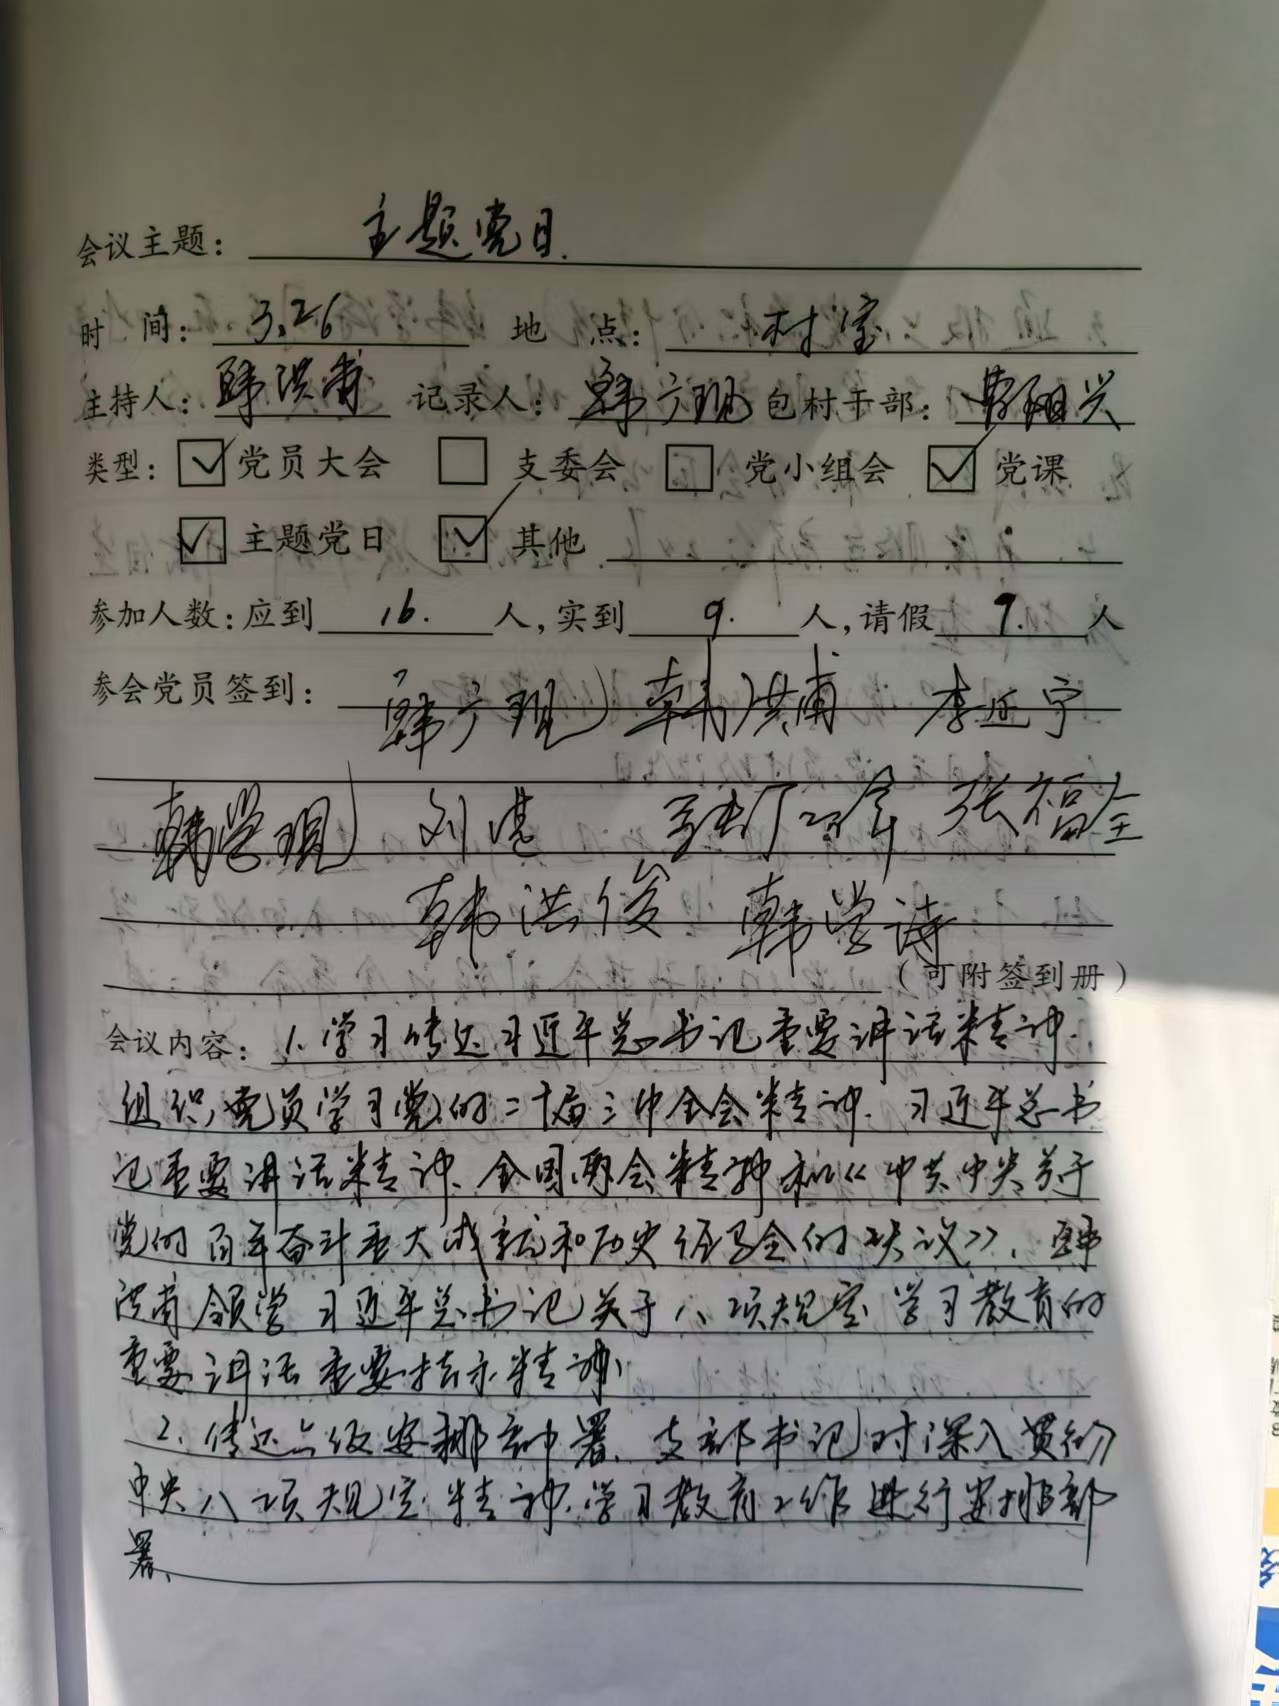 会议主题： 主题党日.
时 间： 3.26 地 点： 村室
主持人： 韩洪甫 记录人： 韩广现 包村干部： 曹阳兴
类型： ☑ 党员大会 □ 支委会 □ 党小组会 ☑ 党课
☑ 主题党日 ☑ 其他
参加人数：应到 16. 人，实到 9. 人，请假 7. 人
参会党员签到： 韩广现 韩洪甫 李近宁
韩学现 刘湛 张福全
韩洪俊 韩学诗
（可附签到册）
会议内容： 1. 学习传达习近平总书记重要讲话精神.
组织党员学习党的二十届三中全会精神. 习近平总书
记重要讲话精神、全国两会精神和《中共中央关于
党的百年奋斗重大成就和历史经验的决议》、韩
洪甫领学习近平总书记关于八项规定学习教育的
重要讲话重要指示精神.
2. 传达上级安排部署、支部书记对深入贯彻
中央八项规定精神学习教育工作进行安排部
署、